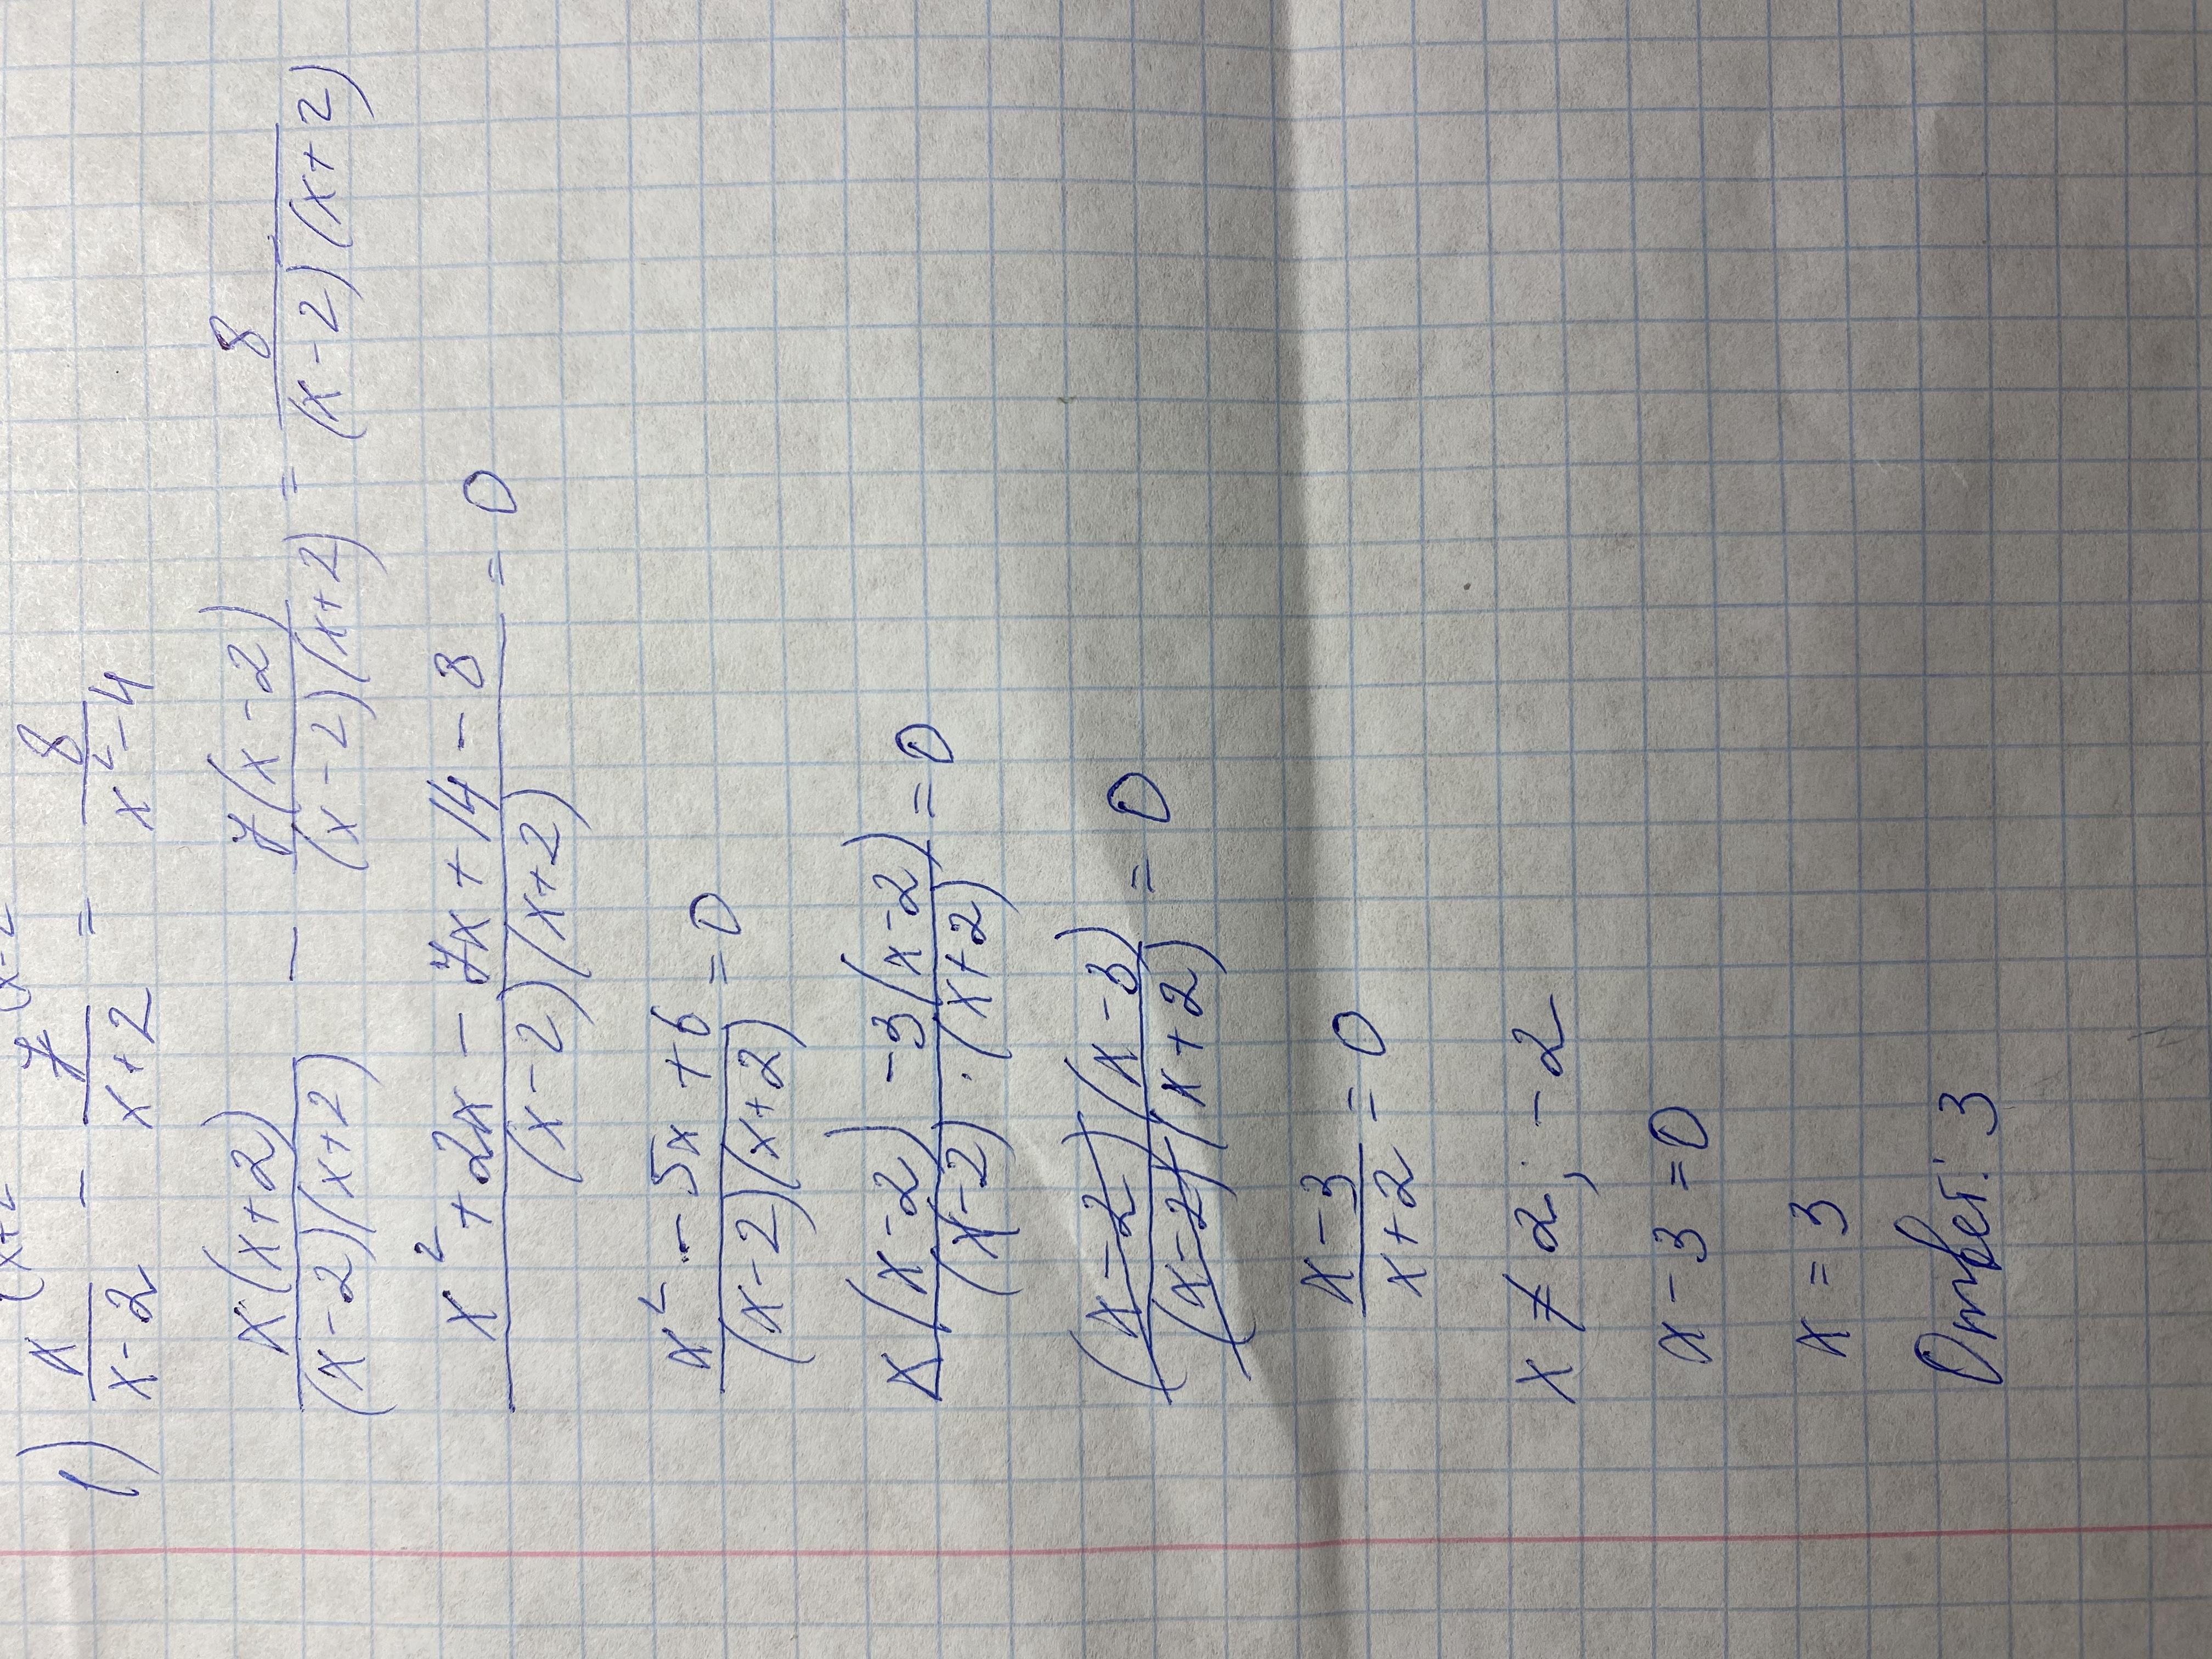 (x+2 (x-2
1) x/(x-2) - 7/(x+2) = 8/(x²-4)
x(x+2)/((x-2)(x+2)) - 7(x-2)/((x-2)(x+2)) = 8/((x-2)(x+2))
(x²+2x-7x+14-8)/((x-2)(x+2)) = 0
(x²-5x+6)/((x-2)(x+2)) = 0
(x(x-2)-3(x-2))/((x-2)·(x+2)) = 0
(x-2)(x-3)/((x-2)(x+2)) = 0
(x-3)/(x+2) = 0
x ≠ 2; -2
x-3=0
x=3
Ответ: 3